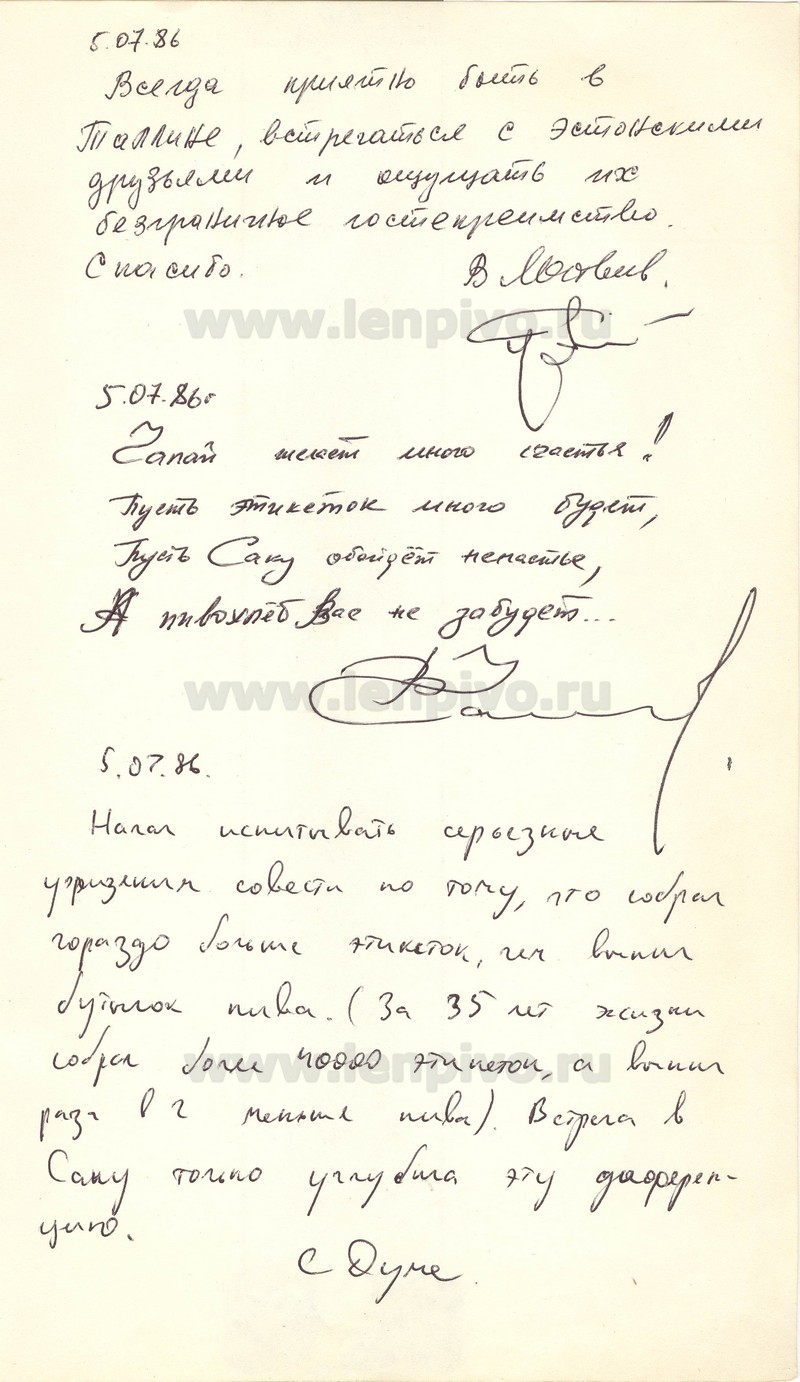 5.07.86
Всегда приятно быть в
Таллине, встречаться с эстонскими
друзьями и ощущать их
безграничное гостепреимство.
Спасибо. В
www.lenpivo.ru
5.07.86г
Чапай желает много счастья!
Пусть этикеток много будет,
Пусть Саку обойдёт ненастье,
А пивохлёб Вас не забудет...
www.lenpivo.ru
5.07.86.
Начал испытывать серьезные
угризения совести по тому, что собрал
гораздо больше этикеток, чем выпил
бутылок пива. (За 35 лет жизни
собрал более 40000 этикеток, а выпил
www.lenpivo.ru
раза в 2 меньше пива). Встреча в
Саку только углубила эту диферен-
цию.
С Думе